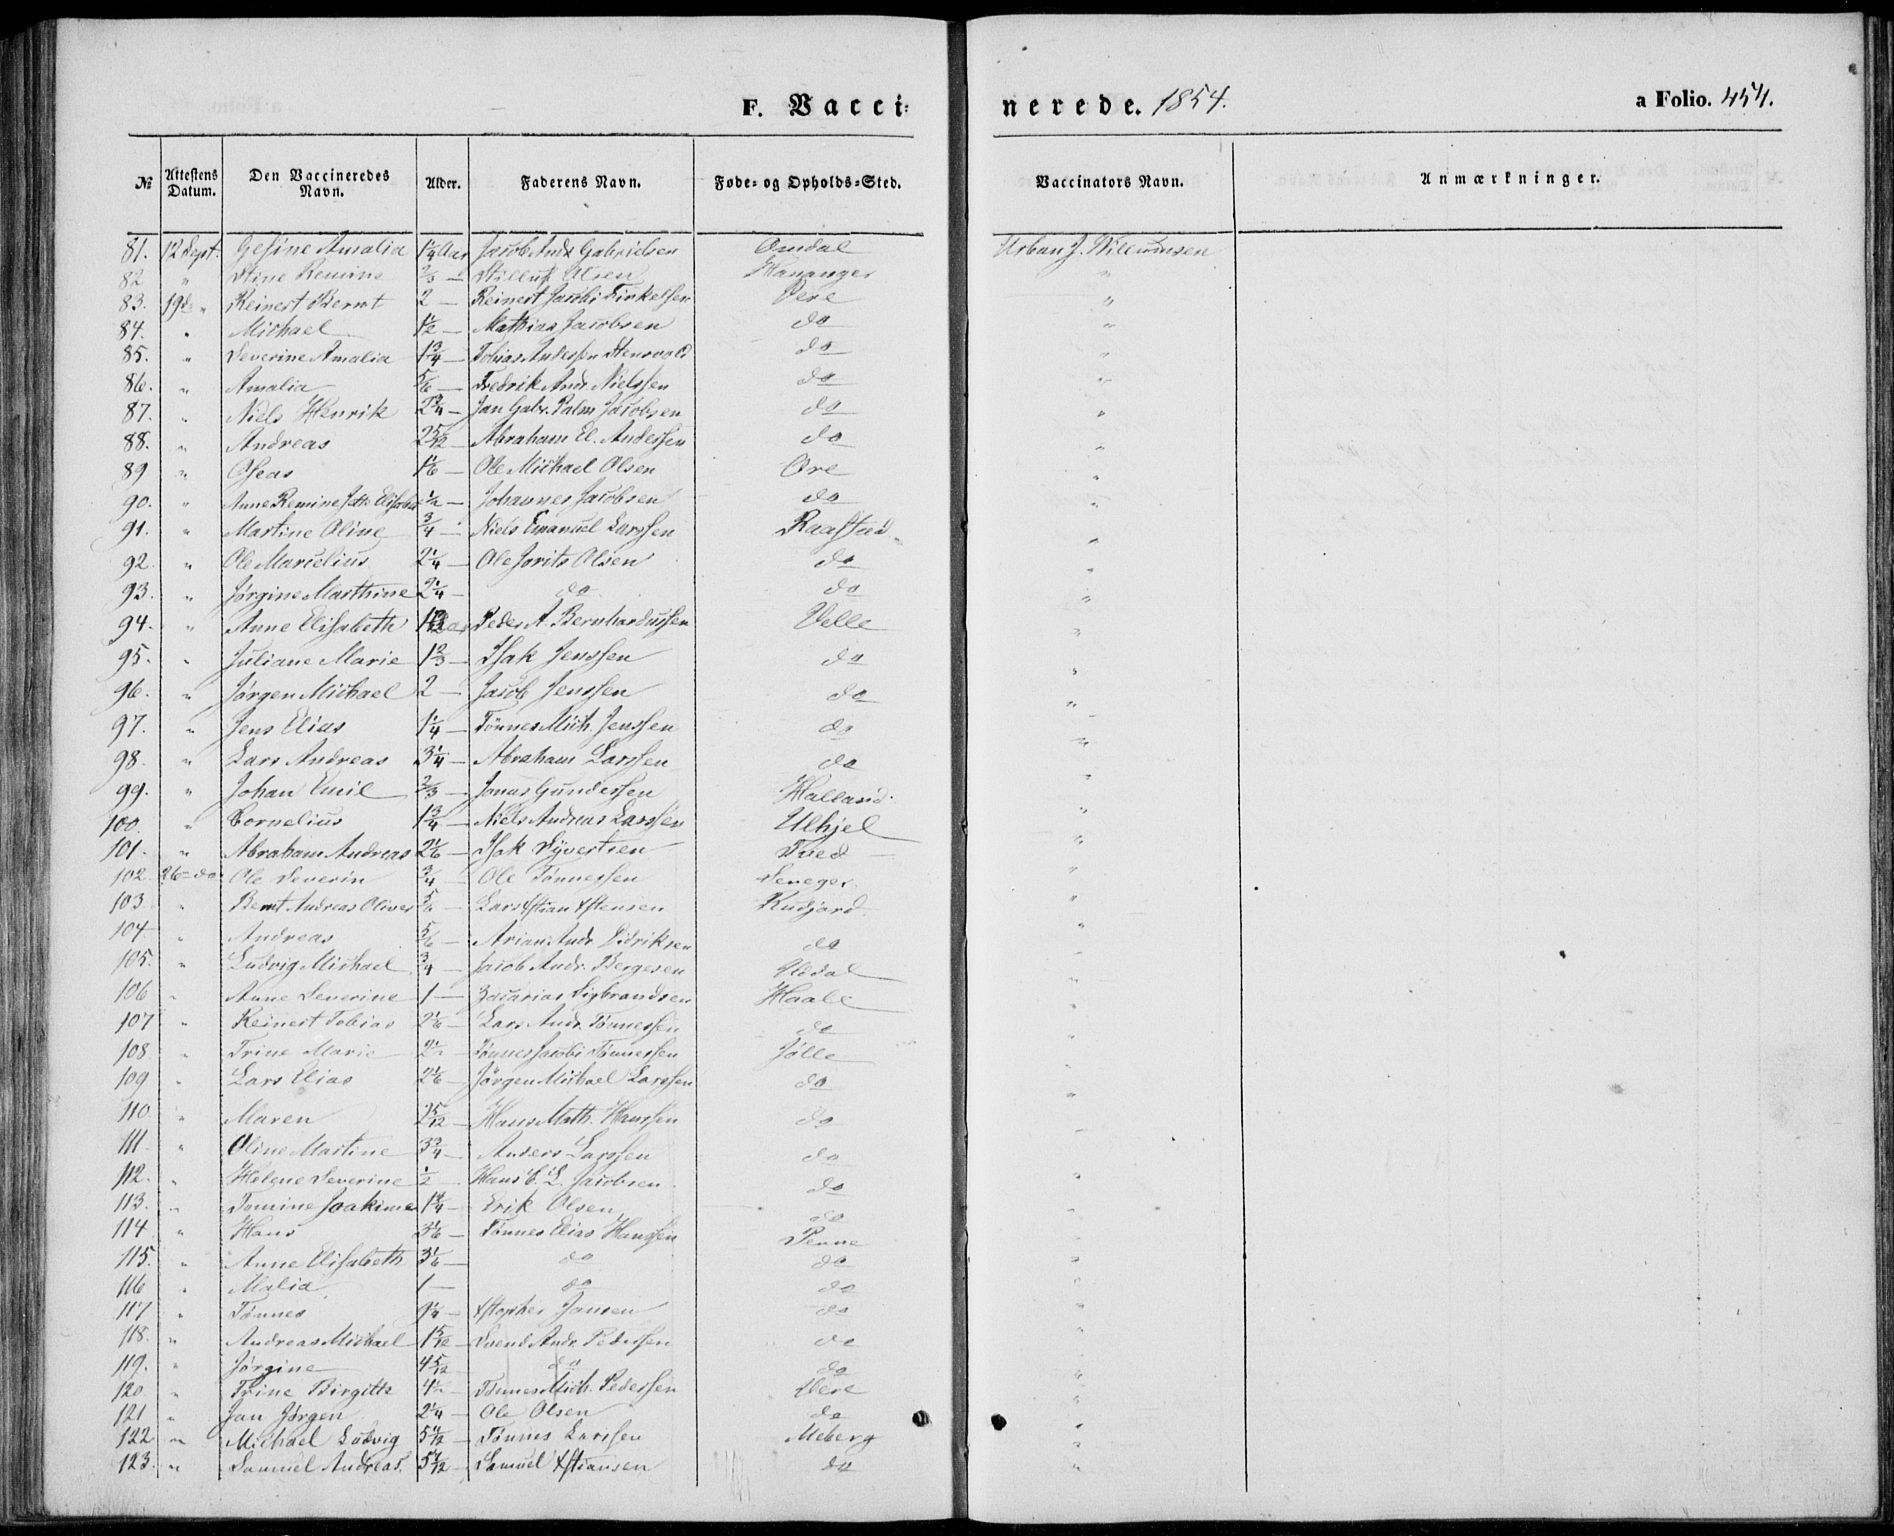 F. Vacci-
nerede. 1854.
a Folio. 454.
№ Attestens Datum. Den Vaccineredes Navn. Alder. Faderens Navn. Føde- og Opholds-Sted. Vaccinators Navn. Anmærkninger.
81. 12 Sept. Gesine Amalia 1¼ Aar Jacob Andr Gabrielsen Omdal Urban J. Willumsen
82 " Stine Remine ⅔ — Olsen Hananger "
83. 19 d " Reinert Bernt 2 — Reinert Jacobi Tirkelsen Vere "
84. " Michael 1½ — Mathias Jacobsen do "
85. " Severine Amalia 1¾ — Tobias Anderssen Stensvold do "
86. " Amalia 5/6 — Fredrik Andr. Nielssen do "
87. " Niels Henrik 2¾ — Jan Gabr. Palm Jacobsen do "
88. " Andreas 2 5/12 — Abraham El. Anderssen do "
89 " Oseas 1 1/6 — Ole Michael Olsen Ore "
90. " Anne Remine Elisabet ½ — Johannes Jacobsen do "
91. " Martine Oline ¾ — Niels Emanuel Larssen Raastad "
92. " Ole Marcelius 2¼ — Ole Olsen do "
93. " Jørgine Marthine 2¼ — do do "
94. " Anne Elisabeth Peder A. Bernhardussen Velle "
95. " Juliane Marie 1⅔ — Isak Jenssen do "
96. " Jørgen Michael 2 — Jacob Jenssen do "
97. " Jens Elias 1¼ — Tønnes Mich. Jenssen do "
98. " Lars Andreas 3¼ — Abraham Larssen do "
99. " Johan Emil ⅔ — Jonas Gunderssen Halland. "
100. " Cornelius 1¾ — Niels Andreas Larssen Ulhjel "
101. " Abraham Andreas 2 1/6 — Isak Syvertsen Tved "
102. 26 do Ole Severin ¾ — Ole Tønnessen "
103. " Bernt Andreas Oliver 5/6 — Lars Xstian Xstensen Rudjord "
104 " Andreas 5/6 — Arian Andr. Didriksen do "
105. " Ludvig Michael ¾ — Jacob Andr. Bergesen "
106 " Anne Severine 1 — Zacarias Sigbrandsen Haale "
107 " Reinert Tobias 2 1/6 — Lars Andr. Tønnessen do "
108 " Trine Marie 2½ — Tønnes Jacobi Tønnessen Jølle "
109 " Lars Elias 2 1/6 — Jørgen Michael Larssen do "
110. " Maren 2 5/12 — Hans Math. Hanssen do "
111. " Oline Martine 3¾ — Anders Larssen do
112. " Helene Severine ½ — Hans C. L. Jacobsen do "
113. " Tomine Joakime 1¾ — Erik Olsen do "
114 " Hans — Tønnes Elias Hanssen Penne "
115. " Anne Elisabeth 3 1/6 — do do "
116 " Malia 1 — do do "
117 " Tønnes — Xstopher Jansen do "
118. " Andreas Michael 1 5/12 — Svend Andr. Pederssen do "
119. " Jørgine 4 5/12 do do "
120 " Trine Birgitte 4½ — Tønnes Mich. Pederssen Vere "
121 " Jan Jørgen 2¼ — Ole Olsen do "
122 " Michael Ludvig — Tønnes Larssen Meberg "
123. " Samuel Andreas. — Samuel Xstiansen do "